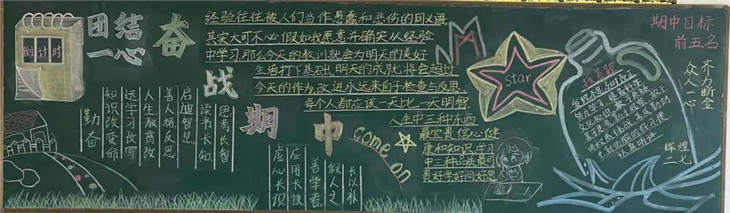 倒计时
团结
一心
奋
战
期
中
经验往往被人们当作愚蠢和悲伤的同义语
其实大可不必假如我愿意并确实从经验
中学习那么今天的教训就会为明天的美好
生活打下基础明天的成就将会超过
今天的作为改进永远来自于检查与反思
每个人都应该一天比一天明智
人生中三种东西
最宝贵信心健
康和知识学习
中三种品质最可
贵好学好问好思
come on
star
期中目标
前五名
齐力断金
众人一心
辉煌
二七
勤奋
知识改变命
运学习改写
人生教育改
善人格反思
启迪智慧
读书长知
思考长智
虚心长识
应用长技
善学者
假人之
长以补